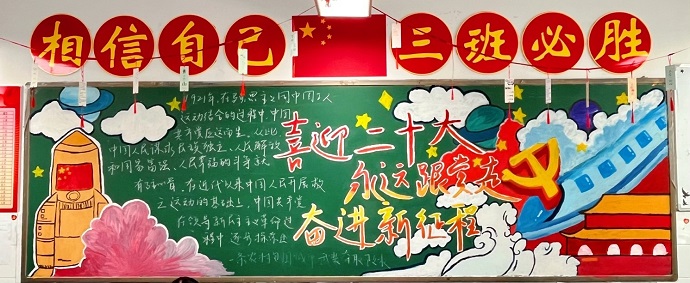 相信自己 三班必胜
1921年，在马克思主义同中国工人
运动结合的过程中，中国
共产党应运而生，从此
中国人民谋求民族独立、人民解放
和国家富强、人民幸福的斗争就
在近代以来中国人民开展救
运动的基础上，中国共产党
在领导新民主主义革命过
程中逐步探索出
喜迎二十大
永远跟党走
奋进新征程